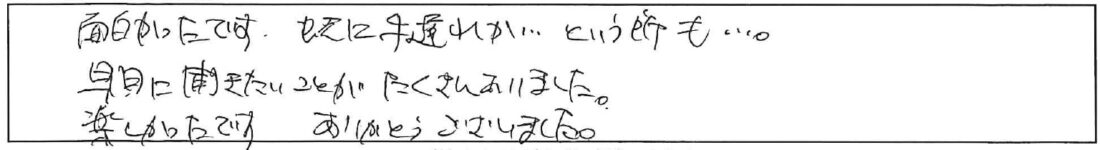 面白かったです. 既に手遅れか… という所も…。
早目に聞きたいことがたくさんありました。
楽しかったです ありがとうございました。